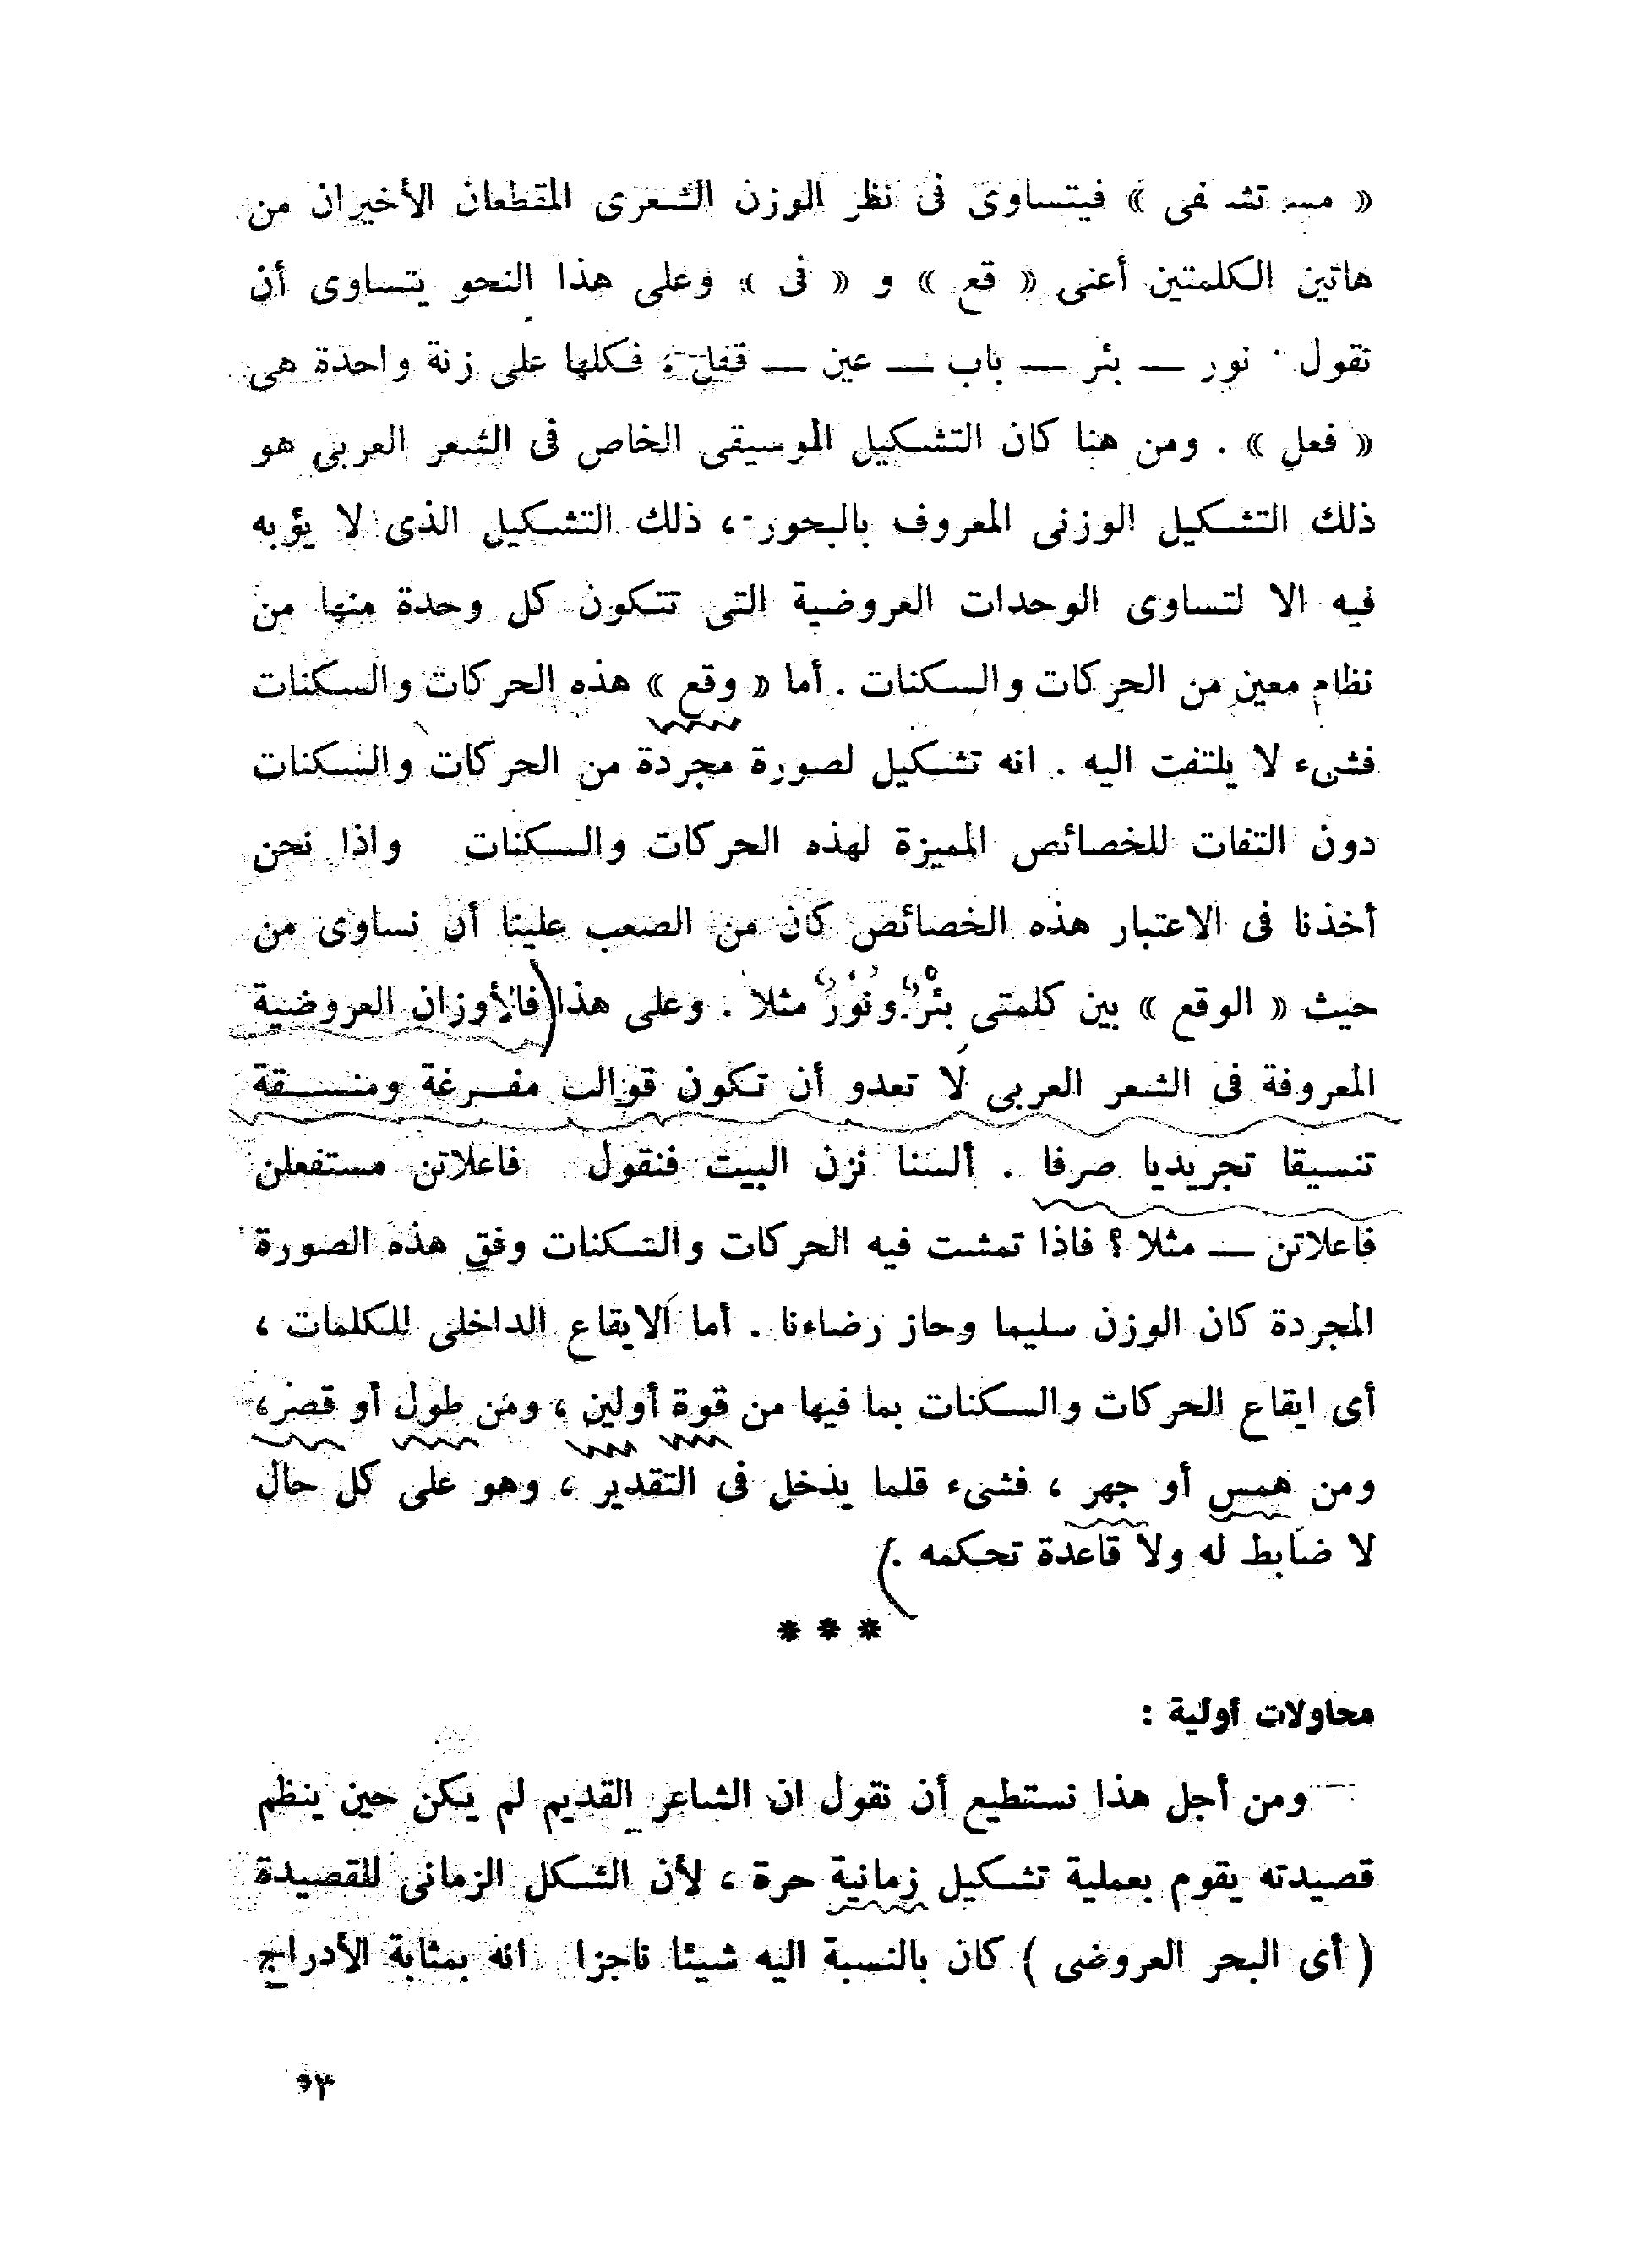 « مسـ تشـ فى » فيتساوى فى نظر الوزن الشعرى المقطعان الأخيران من
هاتين الكلمتين أعنى « قع » و « فى » وعلى هذا النحو يتساوى أن
نقول · نور — بئر — باب — عين — قفل ؛ فكلها على زنة واحدة هى
« فعل » . ومن هنا كان التشكيل الموسيقى الخاص فى الشعر العربى هو
ذلك التشكيل الوزنى المعروف بالبحور ، ذلك التشكيل الذى لا يؤبه
فيه الا لتساوى الوحدات العروضية التى تتكون كل وحدة منها من
نظام معين من الحركات والسكنات . أما « وقع » هذه الحركات والسكنات
فشىء لا يلتفت اليه . انه تشكيل لصورة مجردة من الحركات والسكنات
دون التفات للخصائص المميزة لهذه الحركات والسكنات واذا نحن
أخذنا فى الاعتبار هذه الخصائص كان من الصعب علينا أن نساوى من
حيث « الوقع » بين كلمتى بئْر ونُوْر مثلا . وعلى هذا فالأوزان العروضية
المعروفة فى الشعر العربى لا تعدو أن تكون قوالب مفرغة ومنسقة
تنسيقا تجريديا صرفا . ألسنا نزن البيت فنقول فاعلاتن مستفعلن
فاعلاتن — مثلا ؟ فاذا تمشت فيه الحركات والسكنات وفق هذه الصورة
المجردة كان الوزن سليما وحاز رضاءنا . أما الايقاع الداخلى للكلمات ،
أى ايقاع الحركات والسكنات بما فيها من قوة أولين ، ومن طول أو قصر ،
ومن همس أو جهر ، فشىء قلما يدخل فى التقدير ، وهو على كل حال
لا ضابط له ولا قاعدة تحكمه .
* * *
محاولات أولية :
ومن أجل هذا نستطيع أن نقول ان الشاعر القديم لم يكن حين ينظم
قصيدته يقوم بعملية تشكيل زمانية حرة ، لأن الشكل الزمانى للقصيدة
( أى البحر العروضى ) كان بالنسبة اليه شيئا ناجزا انه بمثابة الأدراج